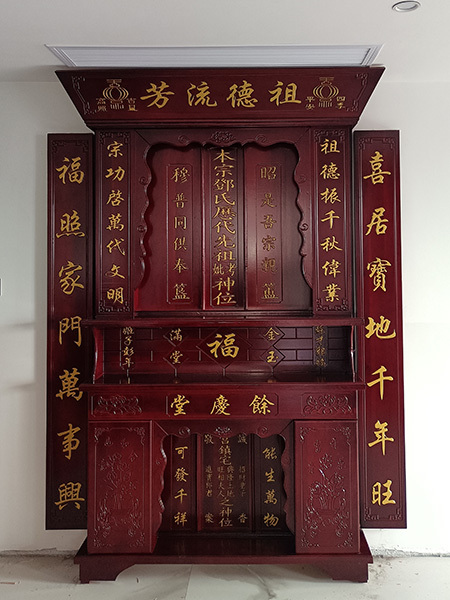 祖德流芳
四季平安
吉星高照
喜居寶地千年旺
福照家門萬事興
祖德振千秋偉業
宗功啓萬代文明
昭是吾宗親籃
本宗鄧氏歷代先祖考妣神位
穆普同供奉籃
金玉
福
滿堂
餘慶堂
能生萬物
之神位
可發千祥